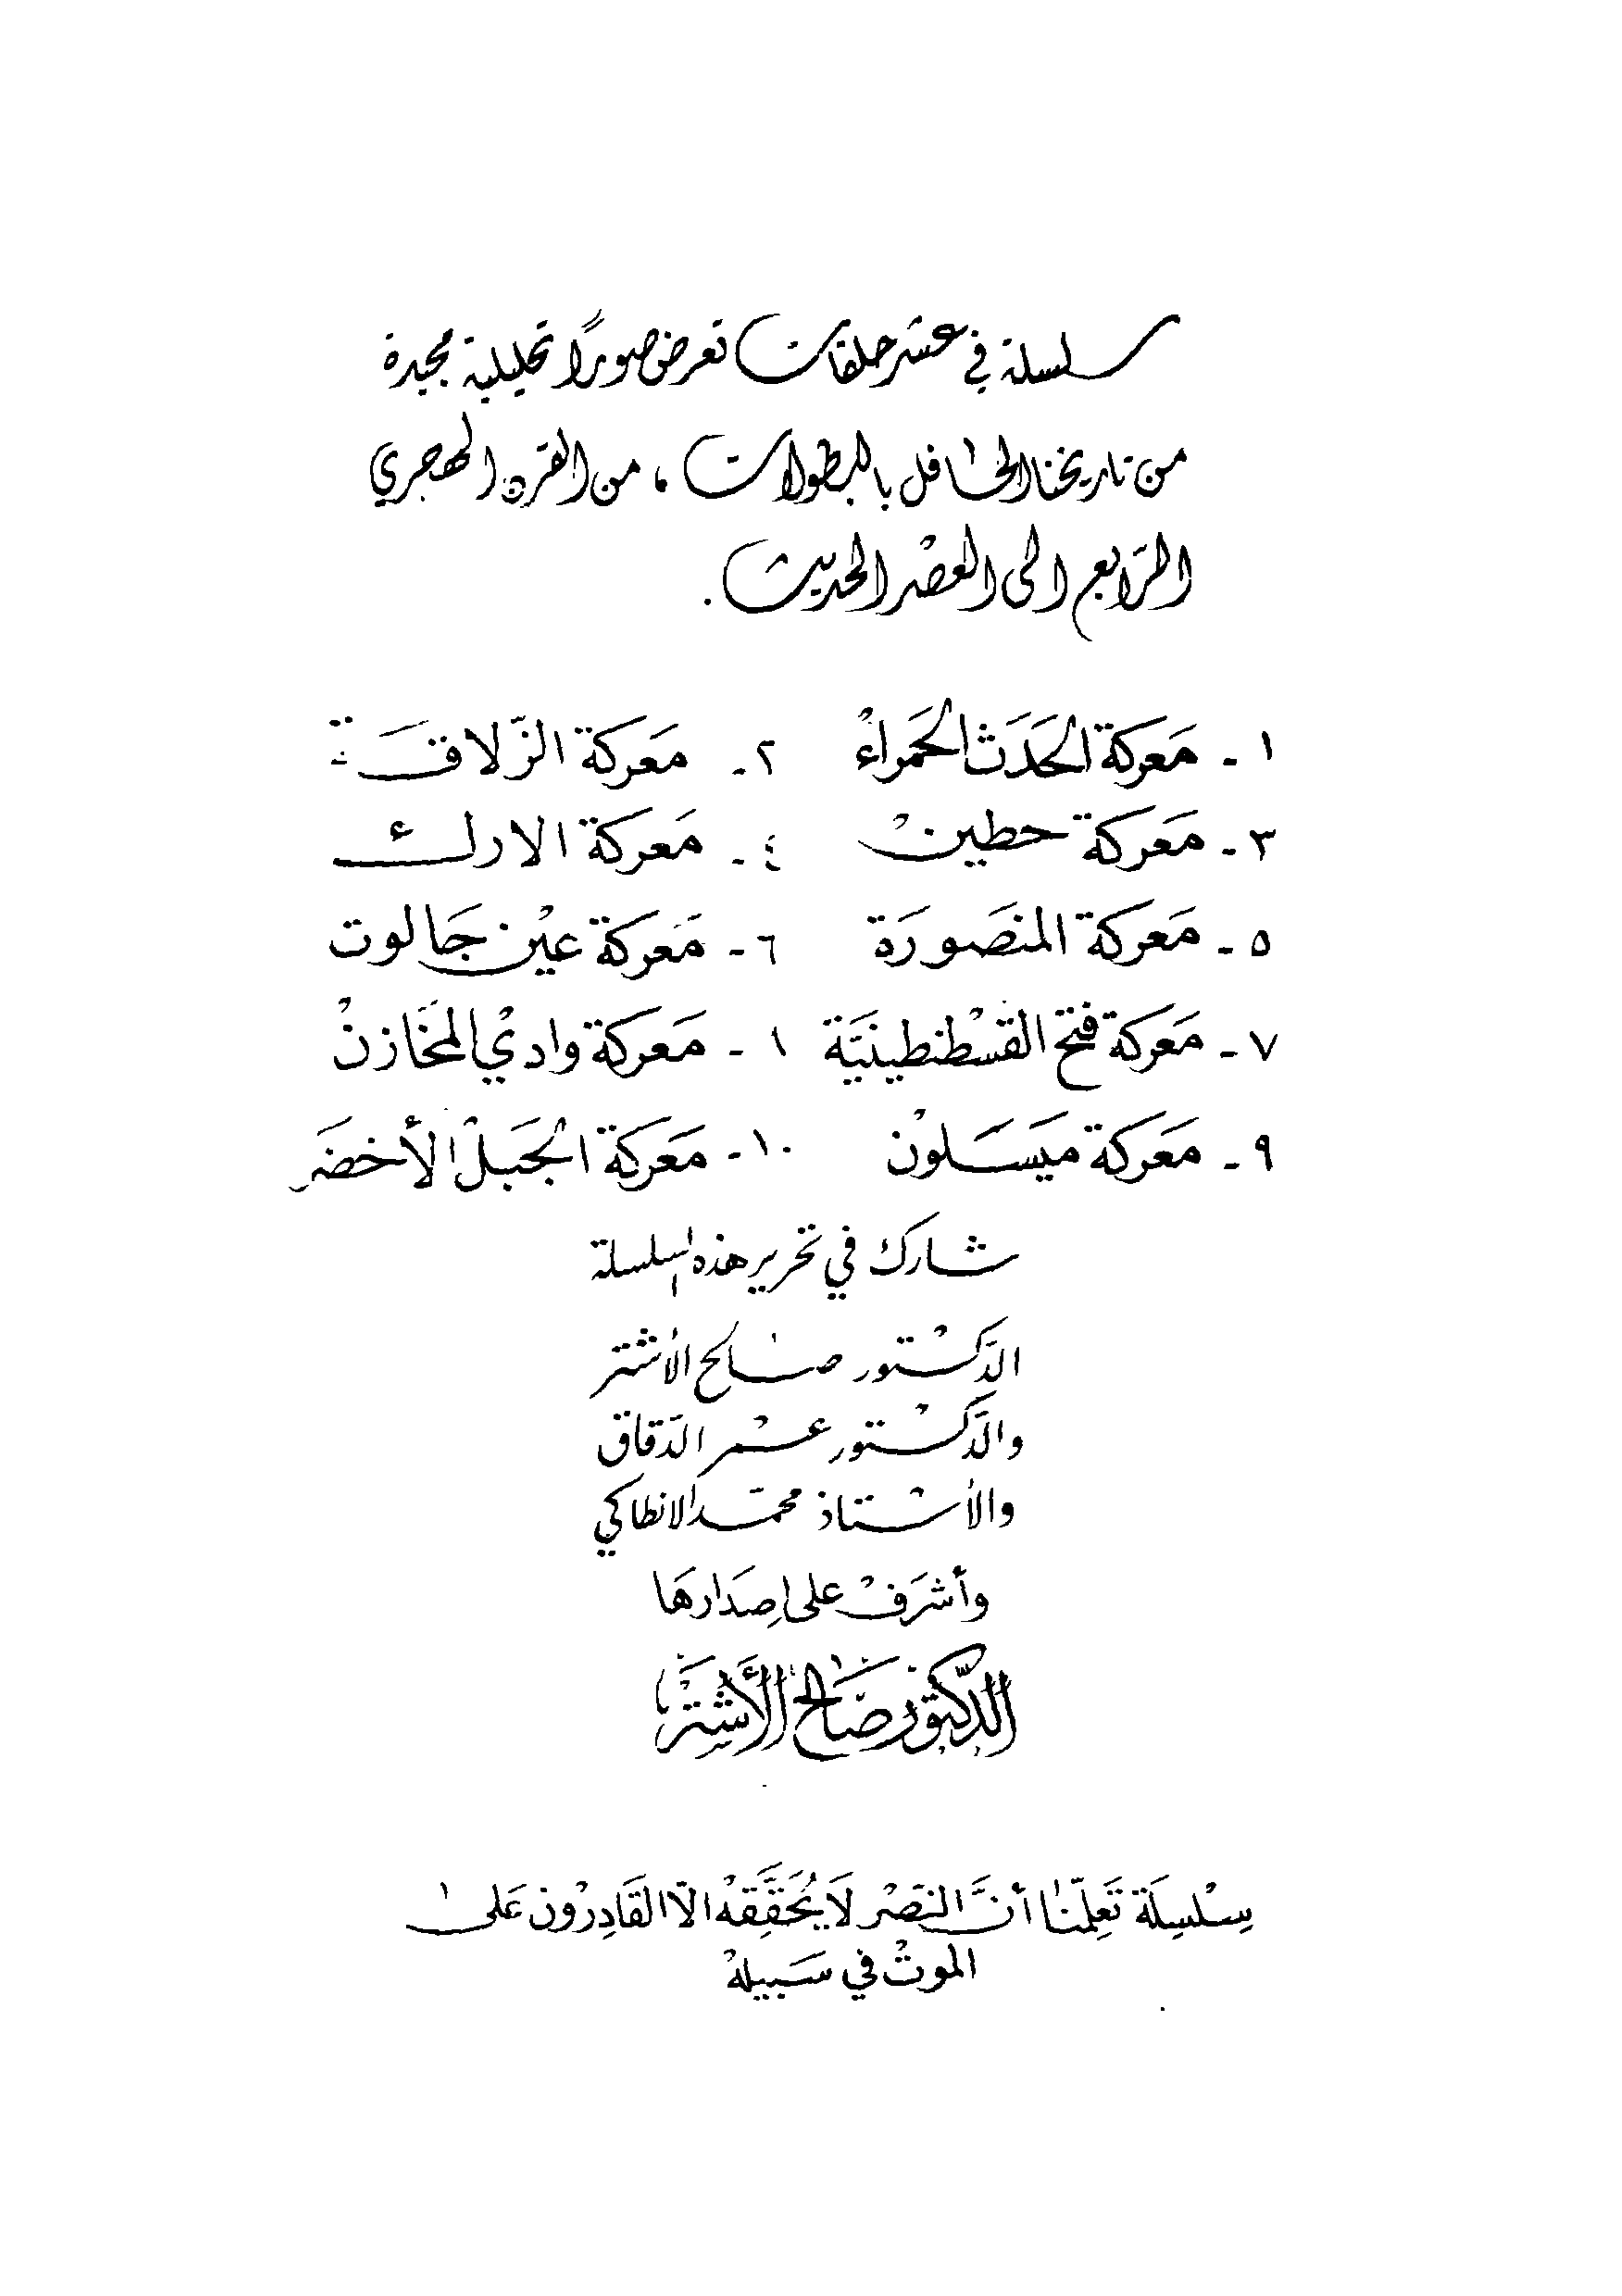 سلسلة في عشر حلقات تعرض صوراً تحليلية مجيدة
من تاريخنا الحافل بالبطولات ، من القرن الهجري
الرابع الى العصر الحديث .
١ - مَعركة الحَدَث الحَمراءْ ٢ - مَعركة الزّلاقَة
٣ - مَعركة حطينْ ٤ - مَعركة الارك
٥ - مَعركة المنصَورَة ٦ - مَعركة عيْن جَالوت
٧ - مَعركة فتح القسْطنطينيَّة ١ - مَعركة واديْ المخَازنْ
٩ - مَعركة ميَسَلوْن ١٠ - مَعركة الجَبلْ الأخضَر
شارك في تحرير هذه السلسلة
الدَّكتْور صالح الأشتر
والدَّكتْور عمْر الدَقاق
والأستْاذ محمّد الانطاكي
وأشرَفْ على إصدَارهَا
الدّكتورْ صَالح الأَشْتَرْ
سِلْسِلَة تَعلِّمنَا أنَّ النصَرْ لَا يُحَقَّقهْ الّا القَادِرْون عَلى
الموتْ في سَبيلهْ